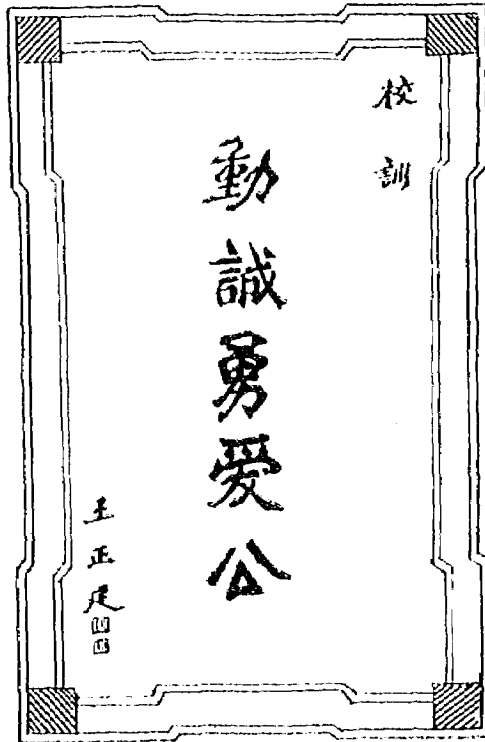 校訓
動誠勇爱公
王正廷